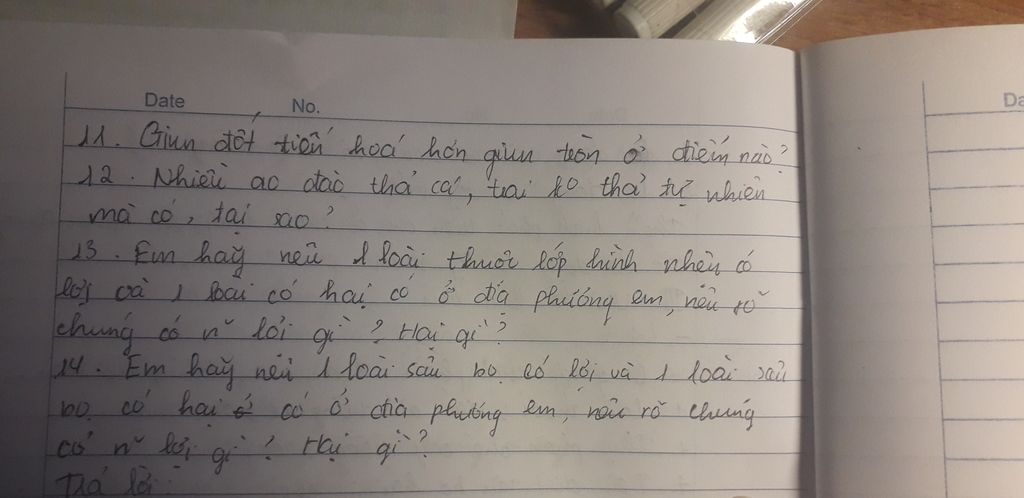 Date No.
Da
11. Giun đốt tiến hoá hơn giun tròn ở điểm nào?
12. Nhiều ao đào thả cá, trai ko thả tự nhiên
mà có, tại sao?
13. Em hãy nêu 1 loài thuộc lớp hình nhện có
lợi và 1 loài có hại có ở địa phương em, nêu rõ
chúng có n~ lợi gì? Hại gì?
14. Em hãy nêu 1 loài sâu bọ có lợi và 1 loài sâu
bọ có hại có ở địa phương em, nêu rõ chúng
có n~ lợi gì? Hại gì?
Trả lời: